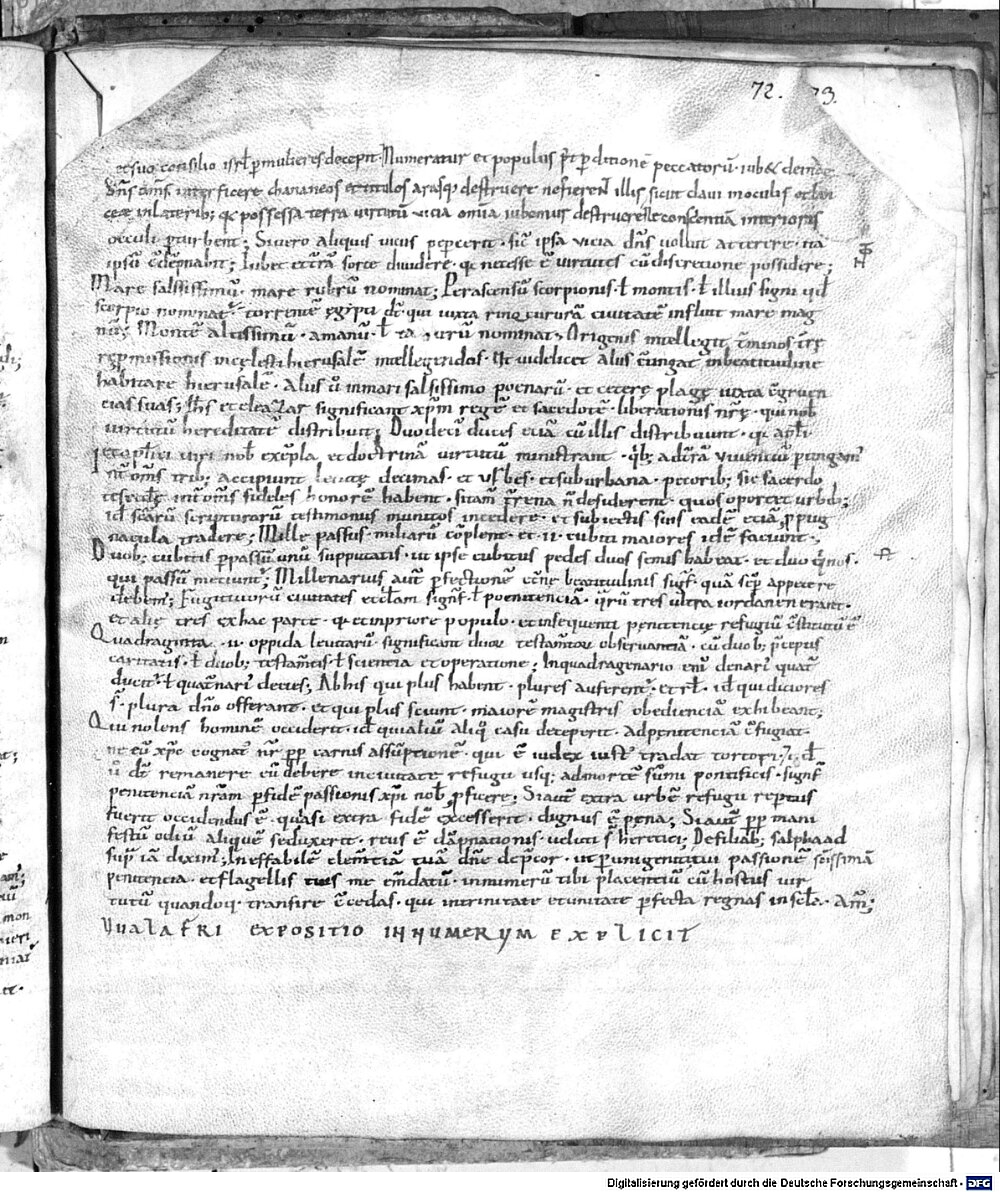 72. 73.
et suo consilio isrl̄ p mulieres decepit. Numeratur et populus p̄t p̄ditionē peccatorū. iub& deinde
dn̄s om̄s interficere chananeos et titulos arasq; destruere ne fierent illis sicut clavi in oculis et lan
ceæ in laterib; qc possessa terra virtutū vicia om̄ia iubemur destruere ne conscientiā interioris
occuli pturbent; Si vero aliquis vicus pepcerit. sic ipsa vicia dn̄s voluit atterere. ita
ipsū c̄dēpnabit; Iubet et t̄rā sorte dividere. qc necesse ē virtutes cū discretione possidere;
Mare salsissimū. mare rubrū nominat; Per ascensū scorpionis. ł montis. ł illius signi qd
scorpio nominat̄. torrentē ęgipti dc̄ qui iuxta rinocururā civitatē influit mare mag
nū; Montē altissimū. amanū. ł taurū nominat. Origenis intellegit t̄minos t̄rę
repmissionis vi cęlesti hierusalē intellegendos. Ut videlicet alius c̄tingat in beatitudine
habitare hierusalē. alius ū in mari salsissimo poenarū. et ceterę plagę iuxta c̄gruen
cias suas; Ih̄s et eleazar significant xp̄m regē et sacedotē. liberationis nr̄ę. qui nob
virtutū hereditatē distribuit; Duodeci duces eciā cū illis distribuunt. qc apl̄i
et ap̄lici viri nob exēpla et doctrinā virtutū ministrant. qb; ad t̄rā viventiū ptingam̄
Int̄ om̄s trib; accipiunt levitę decimas. et urbes. et suburbana. pecorib; sic sacerdo
tes eccle int̄ om̄s fideles honorē habent. si tam̄ t̄rena n̄ desiderent. quos oportet urbib;
id sc̄arū scripturarū testimoniis munitos incedere. et subiectis suis eadē etiā ppug
nacula tradere; Mille passus miliarū cōplent. et II cubiti maiores idē faciunt;
Duob; cubitis p passū unū supputatis. ut ipse cubitus pedes duos semis habeat. et duo qinos.
qui passū meciunt̄; Millenarius aut̄ pfectionē et̄nę beatitudinis sigf̄. quā semp appetere
debem̄; Fugitivorū civitates eccl̄am signf̄. ł poenitenciā. qrū tres ultra iordanen erant.
et alię tres ex hac parte. q et in priore populo. et in sequenti penitencię refugiū c̄stitutū ē
Quadraginta. II. oppida levitarū. significant duor testam̄tor observantiā. cū duob; p̄ceptis
caritatis. ł duob; testam̄tis. ł scientia et operatione; In quadragenario eni denari quat̄
ducit̄. ł quat̄nari decies; Ab his qui plus habent. plures auferent̄. et rł. id qui diciores
s̄. plura dn̄o offerant. et qui plus sciunt. maiorē magistris obedienciā exhibeant;
Qui nolens hominē occiderit. id qui aliū aliq casu deceperit. ad penitenciā c̄fugiat.
ne eū xp̄c cognat̄ nr̄ pp carnis assūptionē. qui ē iudex iust̄ tradat tortori; id
ū dc̄ remanere eū debere in civitate refugii usq; ad mortē sūmi pontificis. signf̄
penitenciā nr̄am p fidē passionis xp̄i nob pficere; Si aut̄ extra urbē refugii reptus
fuerit occidendus ē. quasi extra fidē excesserit. dignus ē pena; Si aut̄ pp mani
festū odiū aliquē seduxerit. reus ē dāpnationis. veluti s̄ heretici; De filiab; salphaad
sup̄ iā dixim̄; Ineffabilē clem̄tiā tuā dn̄e dep̄cor. ut p unigeniti tui passionē sc̄issimā
penitencia. et flagellis tuis me em̄datū. in numerū tibi placentiū cū hostiis vir
tutū quandoq; transire c̄cedas. qui in trinitate et unitate pfecta regnas in scl̄a. Am̄;
VUALAFRI EXPOSITIO IN NUMERUM EXPLICIT
Digitalisierung gefördert durch die Deutsche Forschungsgemeinschaft - DFG